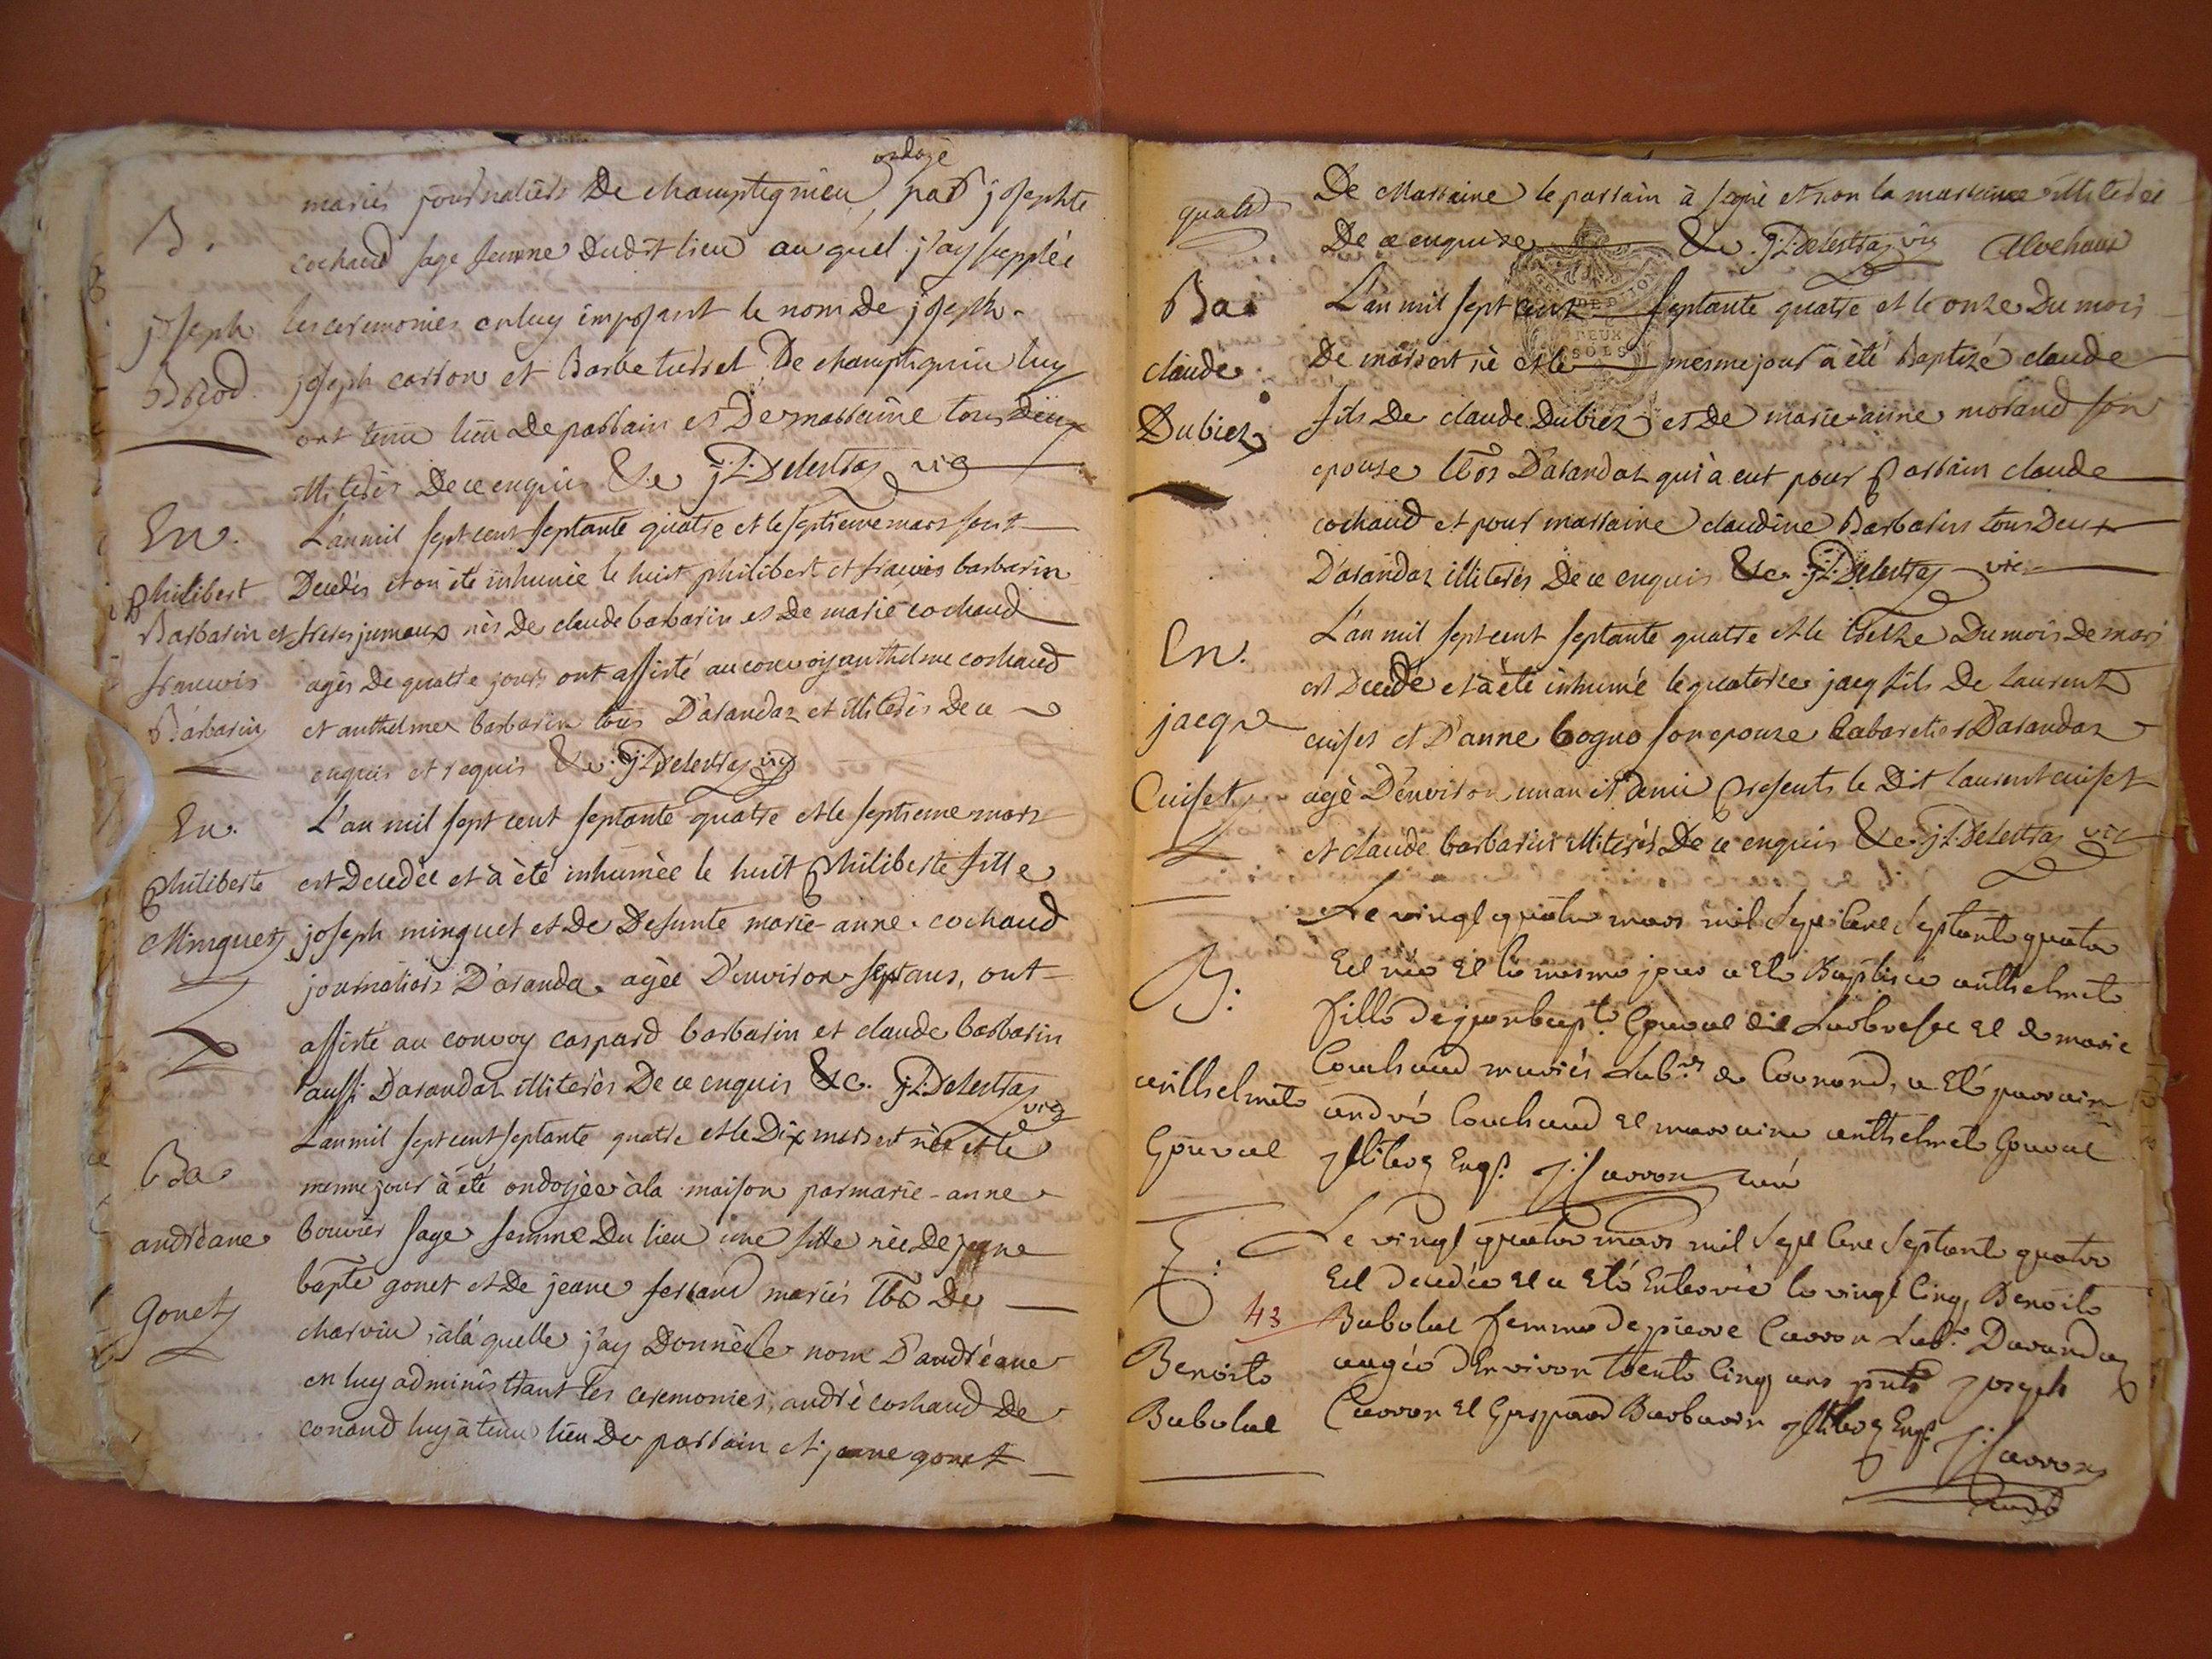 ondoyé
mariés journaliers De champtegnieu, par josephte
B. cochaud sage femme Dudit lieu au quel j'ay supplée
joseph les ceremonies en luy imposant le nom De joseph.
joseph carron et Barbe De luy
ont tenu lieu De parrain et De marraine tous Deux
illiterés De ce enquis &c j:L: Delestra vic
En. L'an mil sept cent septante quatre et le septieme mars sont
philibert Decedés et on été inhumée le huit philibert et francois barbarin
Barbarin et freres jumeaux nés De claude barbarin et De marie cochaud
francois agés De quatre jours ont assisté au convoy anthelme cochaud
Barbarin et anthelme barbarin tous D'arandaz et illiterés De ce
enquis et requis &c. j:L: Delestra vic
En. L'an mil sept cent septante quatre et le septieme mars
philiberte est Decedée et à été inhumée le huit philiberte fille
Minguet joseph minguet et De Defunte marie-anne cochaud
journaliers D'aranda. agée D'environ sept ans, ont
assisté au convoy caspard barbarin et claude barbarin
aussi Darandaz illiterés De ce enquis &c. j:L: Delestra
vic
L'an mil sept cent septante quatre et le Dix mars est née et le
Ba mesme jour à été ondoyée à la maison par marie-anne
andréane bouvier sage femme Du lieu une fille née De jeane
bapte gonet et De jeane ferrand mariés De
Gonet à la quelle j'ay Donnée le nom D'andréane
en luy administrant les ceremonies, andré cochaud De
conand luy à tenu lieu De parrain et jeane gonet
De Marraine le parrain à signé et non la marraine illiterée
De ce enquise &c. j:L: Delestra vic
Ba L'an mil sept cent septante quatre et le onze Du mois
claude De mars est né et le mesme jour à été Baptizé claude
Dubiez fils De claude Dubiez et De marie-anne morand son
epouse D'arandaz qui à eut pour parrain claude
cochaud et pour marraine claudine Barbarin tous Deux
D'arandaz illiterés De ce enquis &c. j:L: Delestra vic
L'an mil sept cent septante quatre et le treize Du mois De mars
En. est Decedé et à été inhumé le quatorze jacq fils De Laurent
jacq cuiset et D'anne bogno son epouse Cabaretier D'arandaz
Cuiset agé D'environ un an et demi presents le Dit laurent cuiset
et claude barbarin illiterés De ce enquis &c. j:L: Delestra vic
Le vingt quatre mars mil Sept Cent Septante quatre
B. Est née Et le mesme jour a Eté Baptisée anthelmete
fille de jeanbapt. Gouval dit Et de marie
Couchaud mariés Lab.rs de Counand, a Eté parrain
anthelmete andré Couchaud Et marraine anthelmete Gouval
Gouval Illiteré Enq. Carron curé
Le vingt quatre mars mil Sept Cent Septante quatre
Est decedée Et a Eté Enterrée le vingt Cinq, Benoite
43 Babolat femme de pierre Carron Lab.r Darandaz
Benoite aagée dEnviron trente Cinq ans pnts joseph
Babolat Carron Et Gaspard Barbarin Illiteré Enq.
Carron
curé